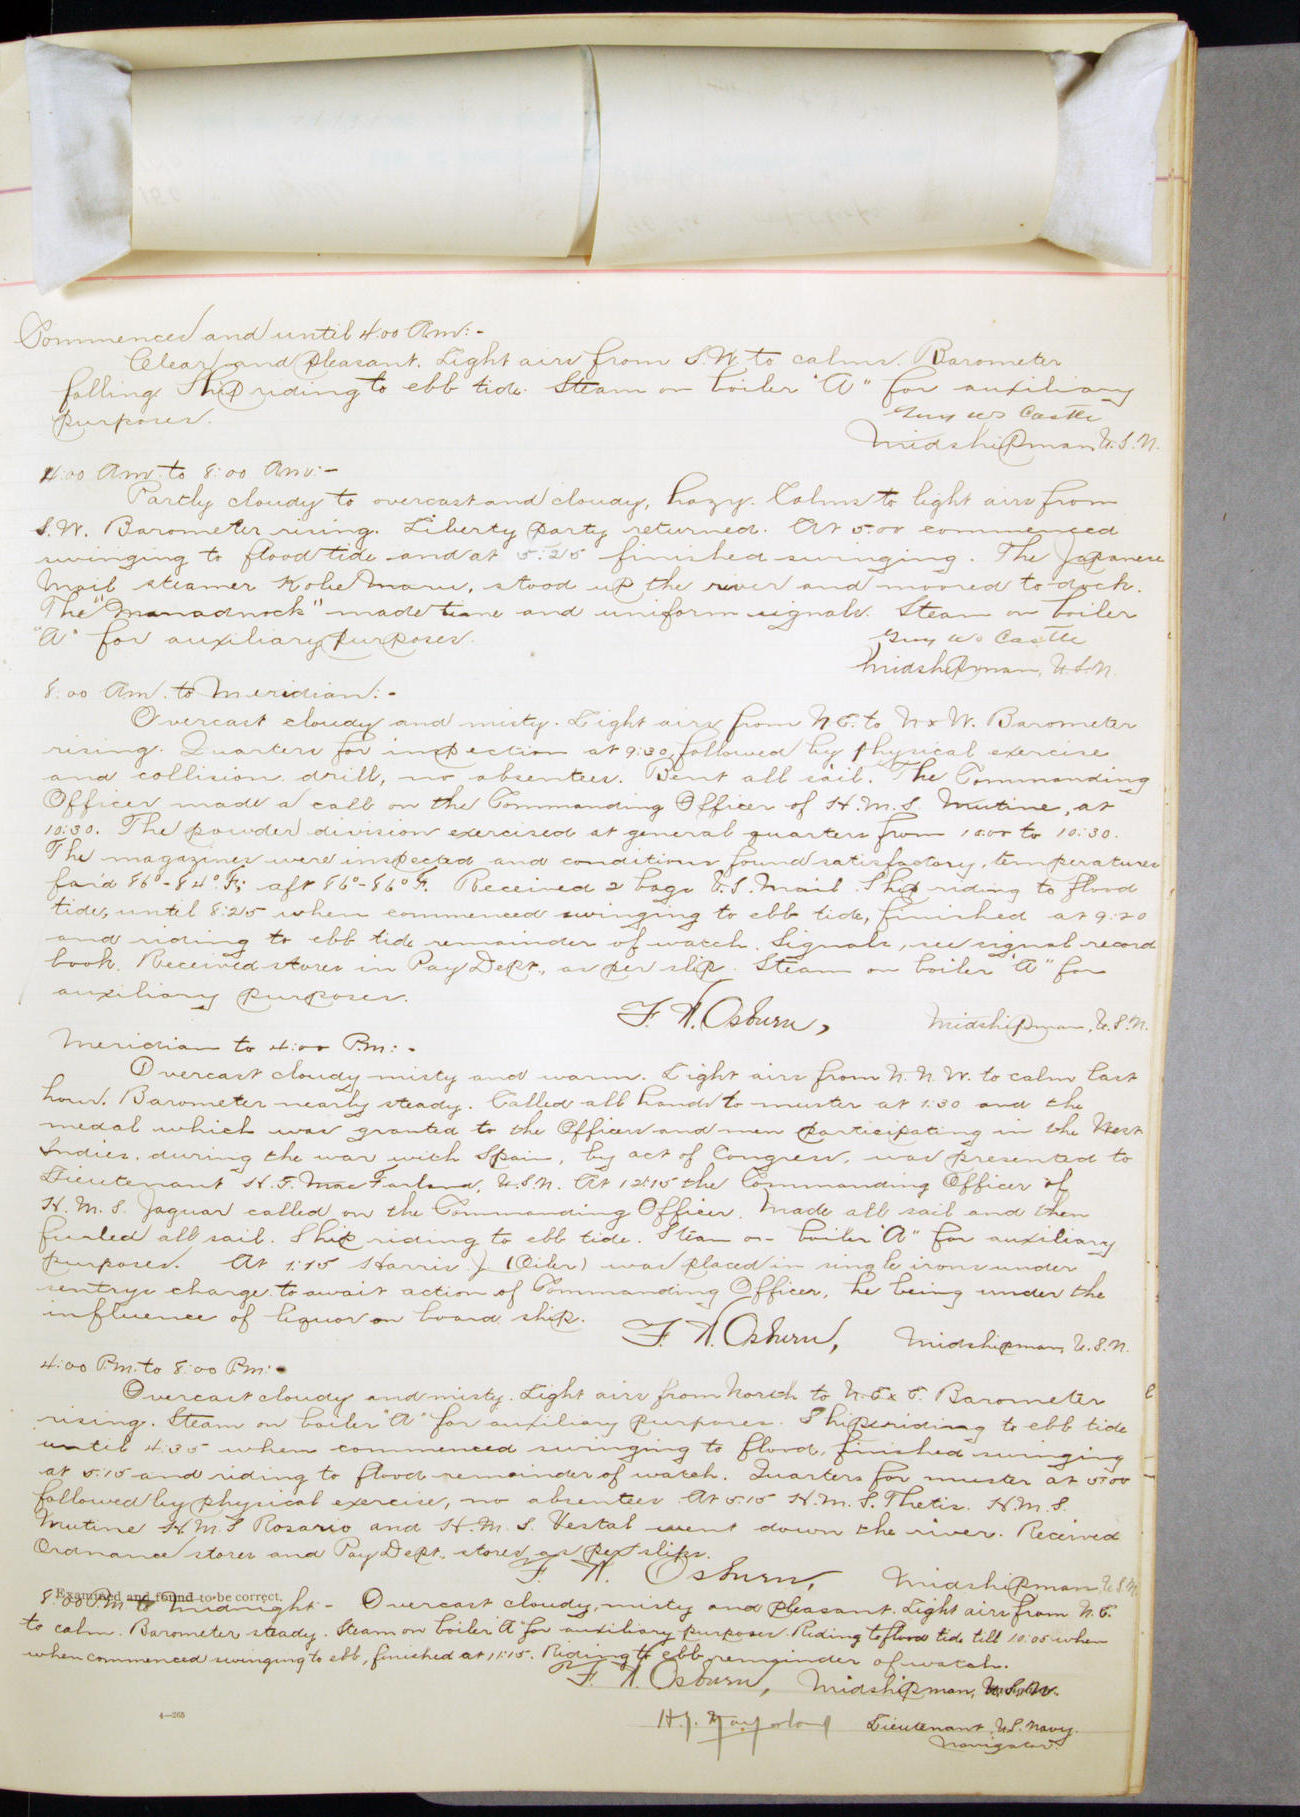 Commenced and until 4:00 Am:-
Clear and pleasant. Light airs from S.W. to calms. Barometer
falling. Ship riding to ebb tide. Steam on boiler "A" for auxiliary
purposes.
Guy W. S. Castle
Midshipman, U.S.N.
4:00 Am. to 8:00 Am:-
Partly cloudy to overcast and cloudy, hazy. Calms to light airs from
S.W. Barometer rising. Liberty party returned. At 5:00 commenced
swinging to flood tide and at 5:25 finished swinging. The Japanese
Mail steamer Kobe Maru, stood up the river and moored to dock.
The "Monadnock" made time and uniform signals. Steam on boiler
"A" for auxiliary purposes.
Guy W. S. Castle
Midshipman, U.S.N.
8:00 Am. to Meridian:-
Overcast cloudy and misty. Light airs from N.E. to N x W. Barometer
rising. Quarters for inspection at 9:30, followed by physical exercise
and collision drill, no absentees. Bent all sail. The Commanding
Officer made a call on the Commanding Officer of H.M.S. Mutine, at
10:30. The powder division exercised at general quarters from 10:00 to 10:30.
The magazines were inspected and conditions found satisfactory, temperatures
for'd 86°-84° F; aft 86°-86° F. Received 2 bags U.S. Mail. Ship riding to flood
tide, until 8:25 when commenced swinging to ebb tide, finished at 9:20
and riding to ebb tide remainder of watch. Signals, see signal record
book. Received stores in Pay Dept., as per slip. Steam on boiler "A" for
auxiliary purposes.
F. N. Osburn, Midshipman, U.S.N.
Meridian to 4:00 P.m:-
Overcast cloudy misty and warm. Light airs from N.N.W. to calm last
hour. Barometer nearly steady. Called all hands to muster at 1:30 and the
medal which was granted to the Officers and men participating in the West
Indies, during the war with Spain, by act of Congress, was presented to
Lieutenant H.F. MacFarland, U.S.N. At 12:15 the Commanding Officer of
H.M.S. Jaguar called on the Commanding Officer. Made all sail and then
furled all sail. Ship riding to ebb tide. Steam on boiler "A" for auxiliary
purposes. At 1:15 Harris J (Oiler) was placed in single irons under
sentrys charge to await action of Commanding Officer, he being under the
influence of liquor on board ship.
F. N. Osburn, Midshipman, U.S.N.
4:00 P.m. to 8:00 P.m:-
Overcast cloudy and misty. Light airs from North to N.E x E. Barometer
rising. Steam on boiler "A" for auxiliary purposes. Ship riding to ebb tide
until 4:35 when commenced swinging to flood, finished swinging
at 5:15 and riding to flood remainder of watch. Quarters for muster at 5:00
followed by physical exercise, no absentees. At 5:15 H.M.S. Thetis. H.M.S.
Mutine H.M.S Rosario and H.M.S. Vestal went down the river. Received
Ordnance stores and Pay Dept. stores as per slips.
F. N. Osburn, Midshipman, U.S.N.
Examined and found to be correct.
8:00 P.m to Midnight:- Overcast cloudy, misty and pleasant. Light airs from N.E.
to calm. Barometer steady. Steam on boiler "A" for auxiliary purposes. Riding to flood tide till 10:05 when
when commenced swinging to ebb, finished at 11:15. Riding to ebb remainder of watch.
F. N. Osburn, Midshipman, U.S.N.
Lieutenant U.S. Navy.
Navigator.
4—265